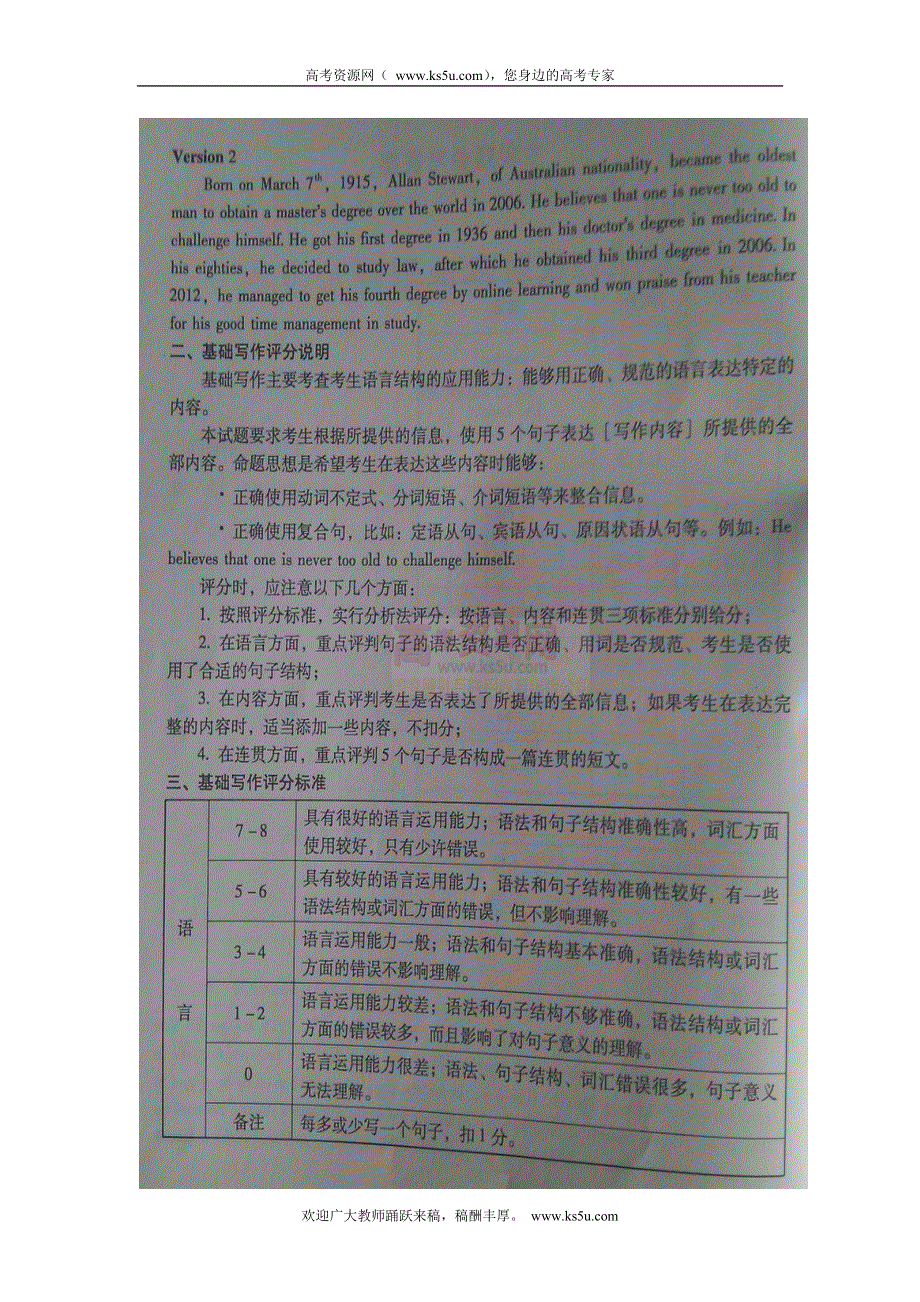 高考资源网（ www.ks5u.com），您身边的高考专家
Version 2
Born on March 7th, 1915, Allan Stewart, of Australian nationality, became the oldest
man to obtain a master's degree over the world in 2006. He believes that one is never too old to
challenge himself. He got his first degree in 1936 and then his doctor's degree in medicine. In
his eighties, he decided to study law, after which he obtained his third degree in 2006. In
2012, he managed to get his fourth degree by online learning and won praise from his teacher
for his good time management in study.
二、基础写作评分说明
基础写作主要考查考生语言结构的应用能力：能够用正确、规范的语言表达特定的
内容。
本试题要求考生根据所提供的信息，使用5个句子表达［写作内容］所提供的全
部内容。命题思想是希望考生在表达这些内容时能够：
·正确使用动词不定式、分词短语、介词短语等来整合信息。
·正确使用复合句，比如：定语从句、宾语从句、原因状语从句等。例如：He
believes that one is never too old to challenge himself.
评分时，应注意以下几个方面：
1. 按照评分标准，实行分析法评分：按语言、内容和连贯三项标准分别给分；
2. 在语言方面，重点评判句子的语法结构是否正确、用词是否规范、考生是否使
用了合适的句子结构；
www.ks5u.com
3. 在内容方面，重点评判考生是否表达了所提供的全部信息；如果考生在表达完
整的内容时，适当添加一些内容，不扣分；
4. 在连贯方面，重点评判5个句子是否构成一篇连贯的短文。
三、基础写作评分标准
语言
7-8
具有很好的语言运用能力；语法和句子结构准确性高，词汇方面
使用较好，只有少许错误。
5-6
具有较好的语言运用能力；语法和句子结构准确性较好，有一些
语法结构或词汇方面的错误，但不影响理解。
3-4
语言运用能力一般；语法和句子结构基本准确，语法结构或词汇
方面的错误不影响理解。
1-2
语言运用能力较差；语法和句子结构不够准确，语法结构或词汇
方面的错误较多，而且影响了对句子意义的理解。
0
语言运用能力很差；语法、句子结构、词汇错误很多，句子意义
无法理解。
备注
每多或少写一个句子，扣1分。
欢迎广大教师踊跃来稿，稿酬丰厚。 www.ks5u.com